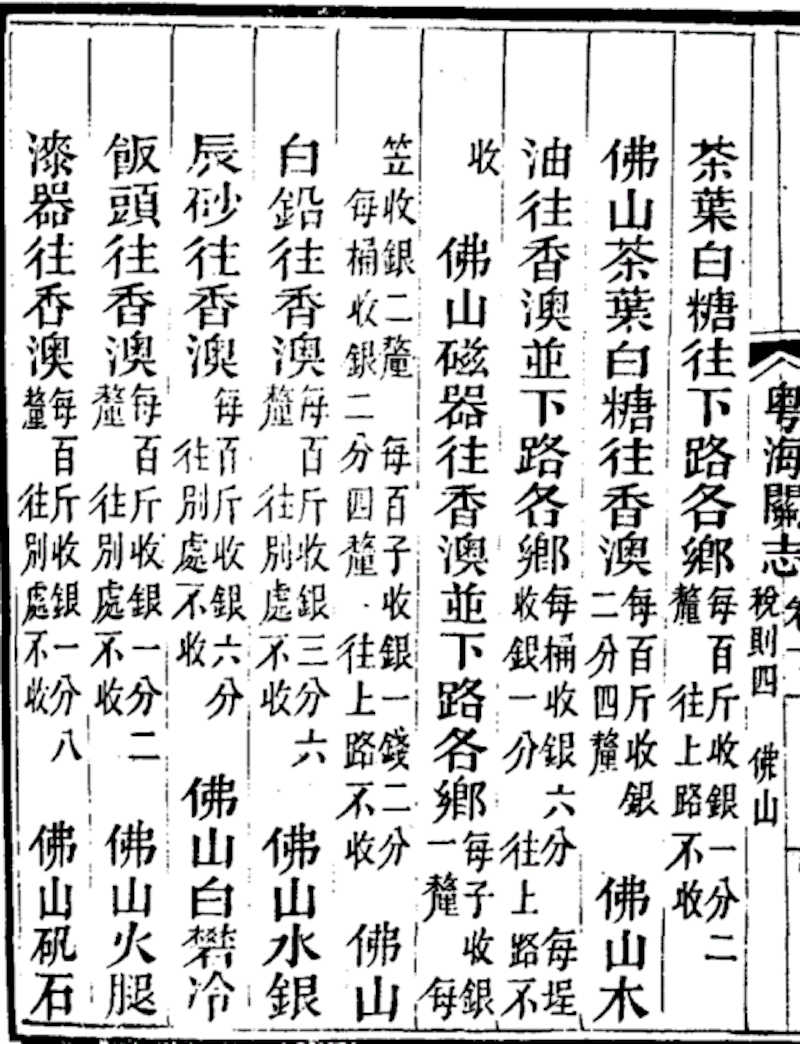 粤海關志 卷十 稅則四 佛山
茶葉白糖往下路各鄉每百斤收銀一分二釐 往上路不收
佛山茶葉白糖往香澳每百斤收銀二分四釐 佛山木
油往香澳並下路各鄉每桶收銀六分 每埕收銀一分 往上路不
收 佛山磁器往香澳並下路各鄉每子收銀一釐 每
笠收銀二釐 每百子收銀一錢二分每桶收銀二分四釐 往上路不收 佛山
白鉛往香澳每百斤收銀三分六釐 往別處不收 佛山水銀
辰砂往香澳每百斤收銀六分往別處不收 佛山白礬冷
飯頭往香澳每百斤收銀一分二釐 往別處不收 佛山火腿
漆器往香澳每百斤收銀一分八釐 往別處不收 佛山矾石